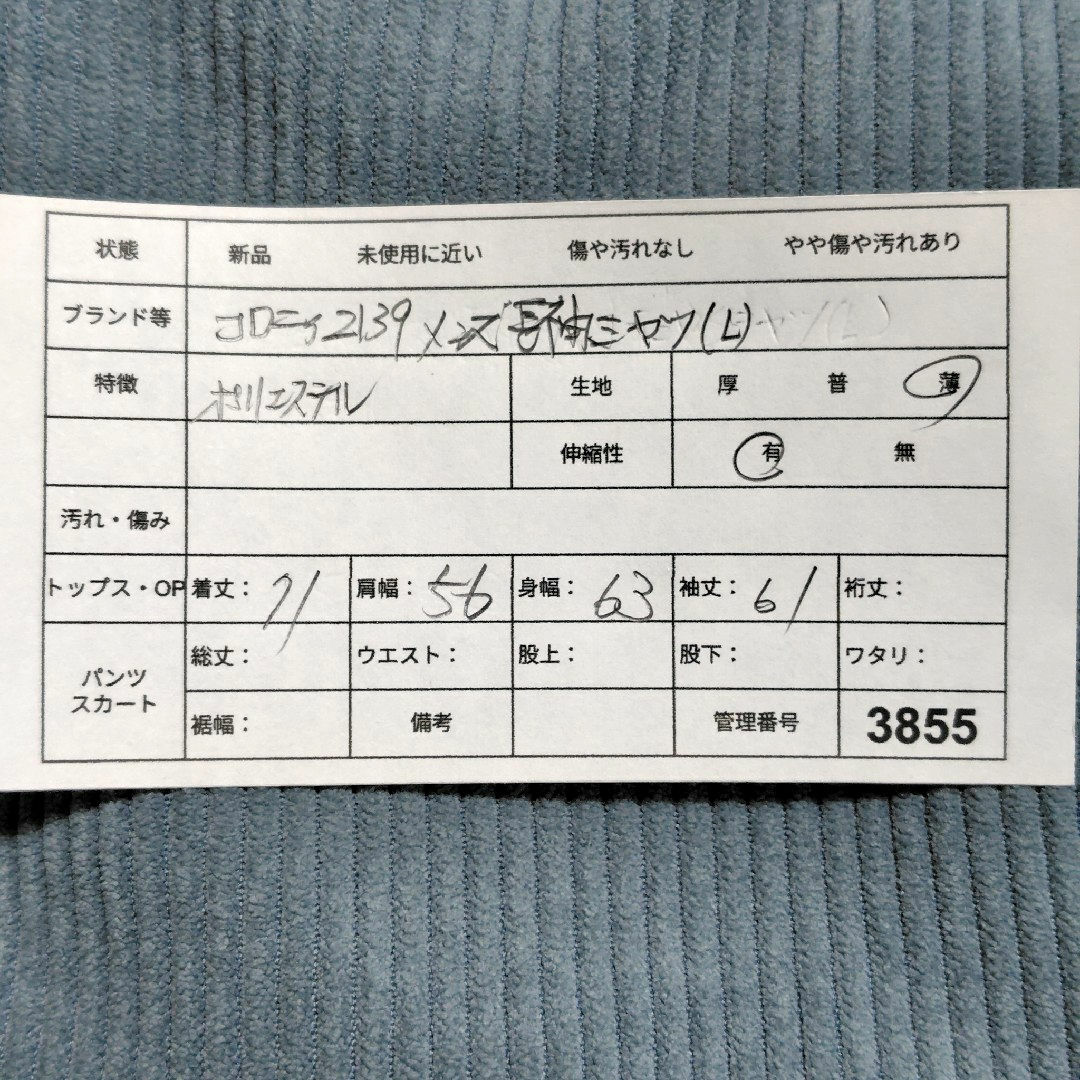 状態 新品 未使用に近い 傷や汚れなし やや傷や汚れあり
ブランド等 コロニィ2139 メンズ 長袖シャツ(L)
特徴 ポリエステル 生地 厚 普 薄
伸縮性 有 無
汚れ・傷み
トップス・OP 着丈: 71 肩幅: 56 身幅: 63 袖丈: 61 裄丈:
パンツ スカート 総丈: ウエスト: 股上: 股下: ワタリ:
裾幅: 備考 管理番号 3855